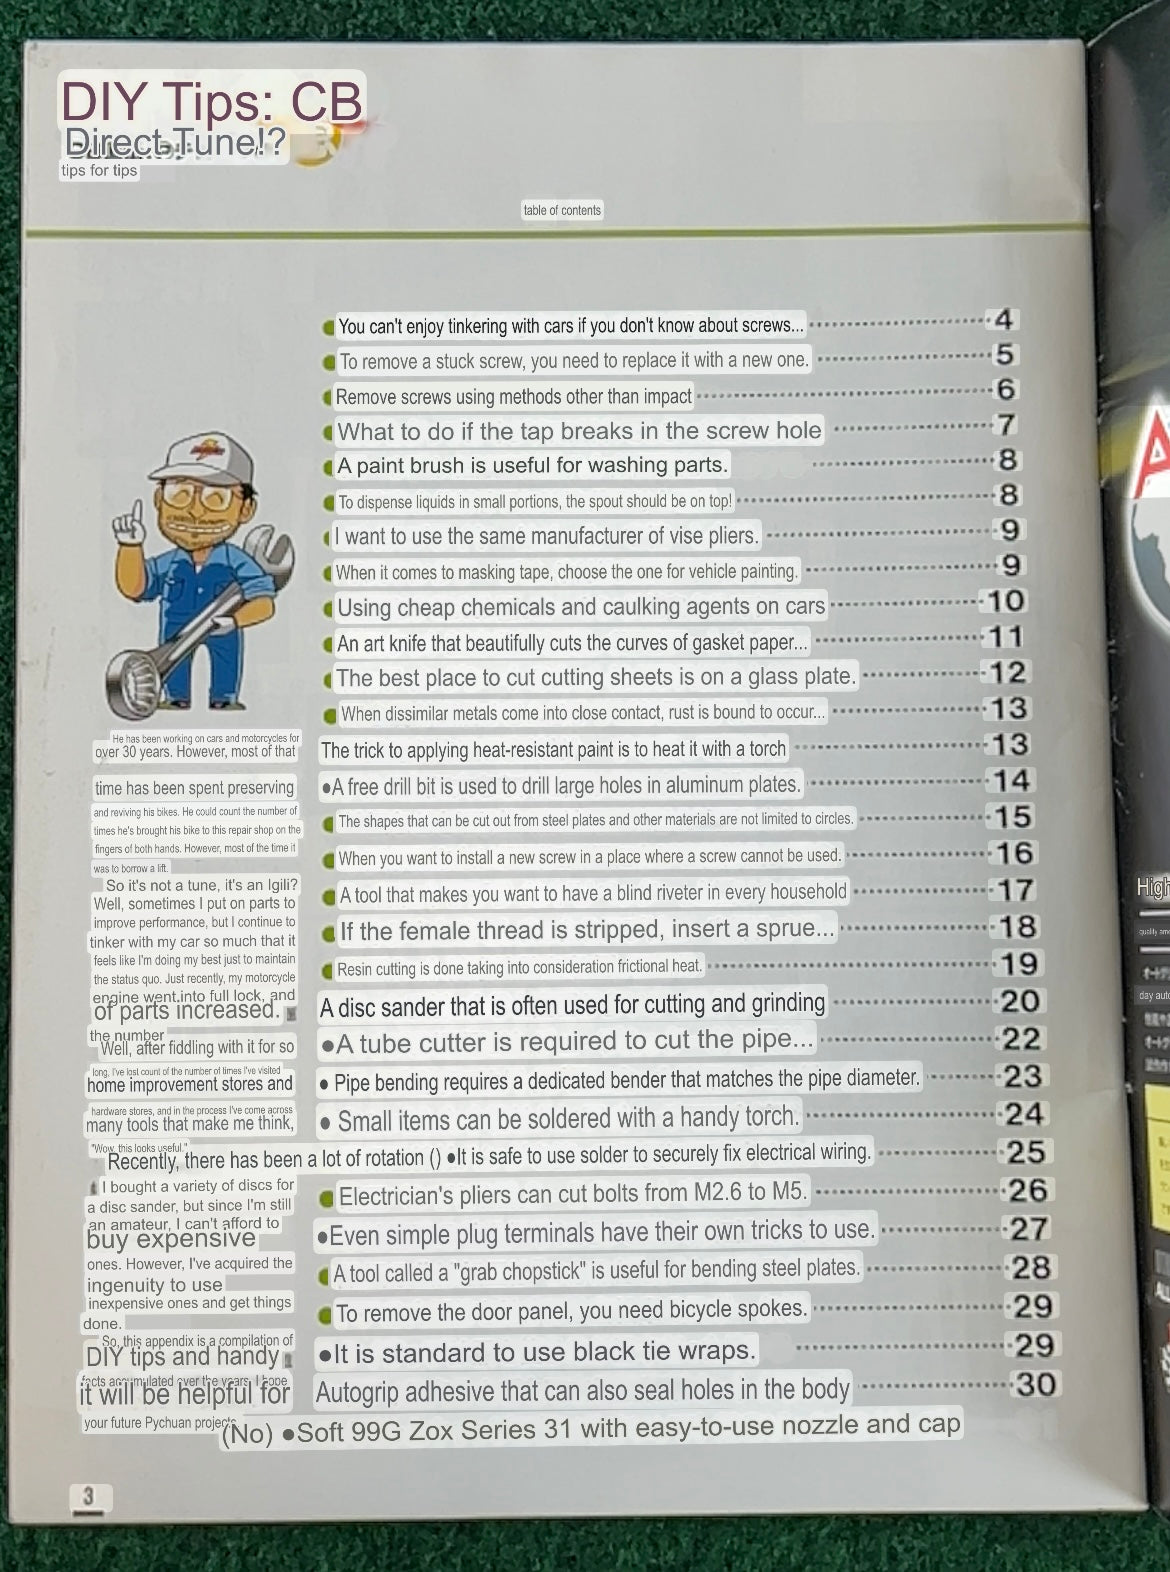 DIY Tips: CB
Direct Tune!?
tips for tips
table of contents
You can't enjoy tinkering with cars if you don't know about screws... 4
To remove a stuck screw, you need to replace it with a new one. 5
Remove screws using methods other than impact 6
What to do if the tap breaks in the screw hole 7
A paint brush is useful for washing parts. 8
To dispense liquids in small portions, the spout should be on top! 8
I want to use the same manufacturer of vise pliers. 9
When it comes to masking tape, choose the one for vehicle painting. 9
Using cheap chemicals and caulking agents on cars 10
An art knife that beautifully cuts the curves of gasket paper... 11
The best place to cut cutting sheets is on a glass plate. 12
When dissimilar metals come into close contact, rust is bound to occur... 13
The trick to applying heat-resistant paint is to heat it with a torch 13
●A free drill bit is used to drill large holes in aluminum plates. 14
The shapes that can be cut out from steel plates and other materials are not limited to circles. 15
When you want to install a new screw in a place where a screw cannot be used. 16
A tool that makes you want to have a blind riveter in every household 17
If the female thread is stripped, insert a sprue... 18
Resin cutting is done taking into consideration frictional heat. 19
A disc sander that is often used for cutting and grinding 20
●A tube cutter is required to cut the pipe... 22
● Pipe bending requires a dedicated bender that matches the pipe diameter. 23
● Small items can be soldered with a handy torch. 24
Recently, there has been a lot of rotation () ●It is safe to use solder to securely fix electrical wiring. 25
Electrician's pliers can cut bolts from M2.6 to M5. 26
●Even simple plug terminals have their own tricks to use. 27
A tool called a "grab chopstick" is useful for bending steel plates. 28
To remove the door panel, you need bicycle spokes. 29
●It is standard to use black tie wraps. 29
Autogrip adhesive that can also seal holes in the body 30
(No) ●Soft 99G Zox Series 31 with easy-to-use nozzle and cap
He has been working on cars and motorcycles for
over 30 years. However, most of that
time has been spent preserving
and reviving his bikes. He could count the number of
times he's brought his bike to this repair shop on the
fingers of both hands. However, most of the time it
was to borrow a lift.
So it's not a tune, it's an Igili?
Well, sometimes I put on parts to
improve performance, but I continue to
tinker with my car so much that it
feels like I'm doing my best just to maintain
the status quo. Just recently, my motorcycle
engine went into full lock, and
of parts increased.
the number
Well, after fiddling with it for so
long, I've lost count of the number of times I've visited
home improvement stores and
hardware stores, and in the process I've come across
many tools that make me think,
"Wow, this looks useful."
I bought a variety of discs for
a disc sander, but since I'm still
an amateur, I can't afford to
buy expensive
ones. However, I've acquired the
ingenuity to use
inexpensive ones and get things
done.
So, this appendix is a compilation of
DIY tips and handy
facts accumulated over the years. I hope
it will be helpful for
your future Pychuan projects.
3
High
quality
day auto